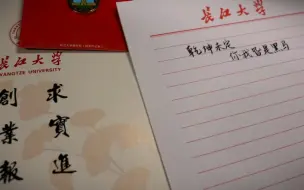 长江大学
YANGTZE UNIVERSITY
求實進
創業報
长江大学
乾坤未定
你我皆是黑马